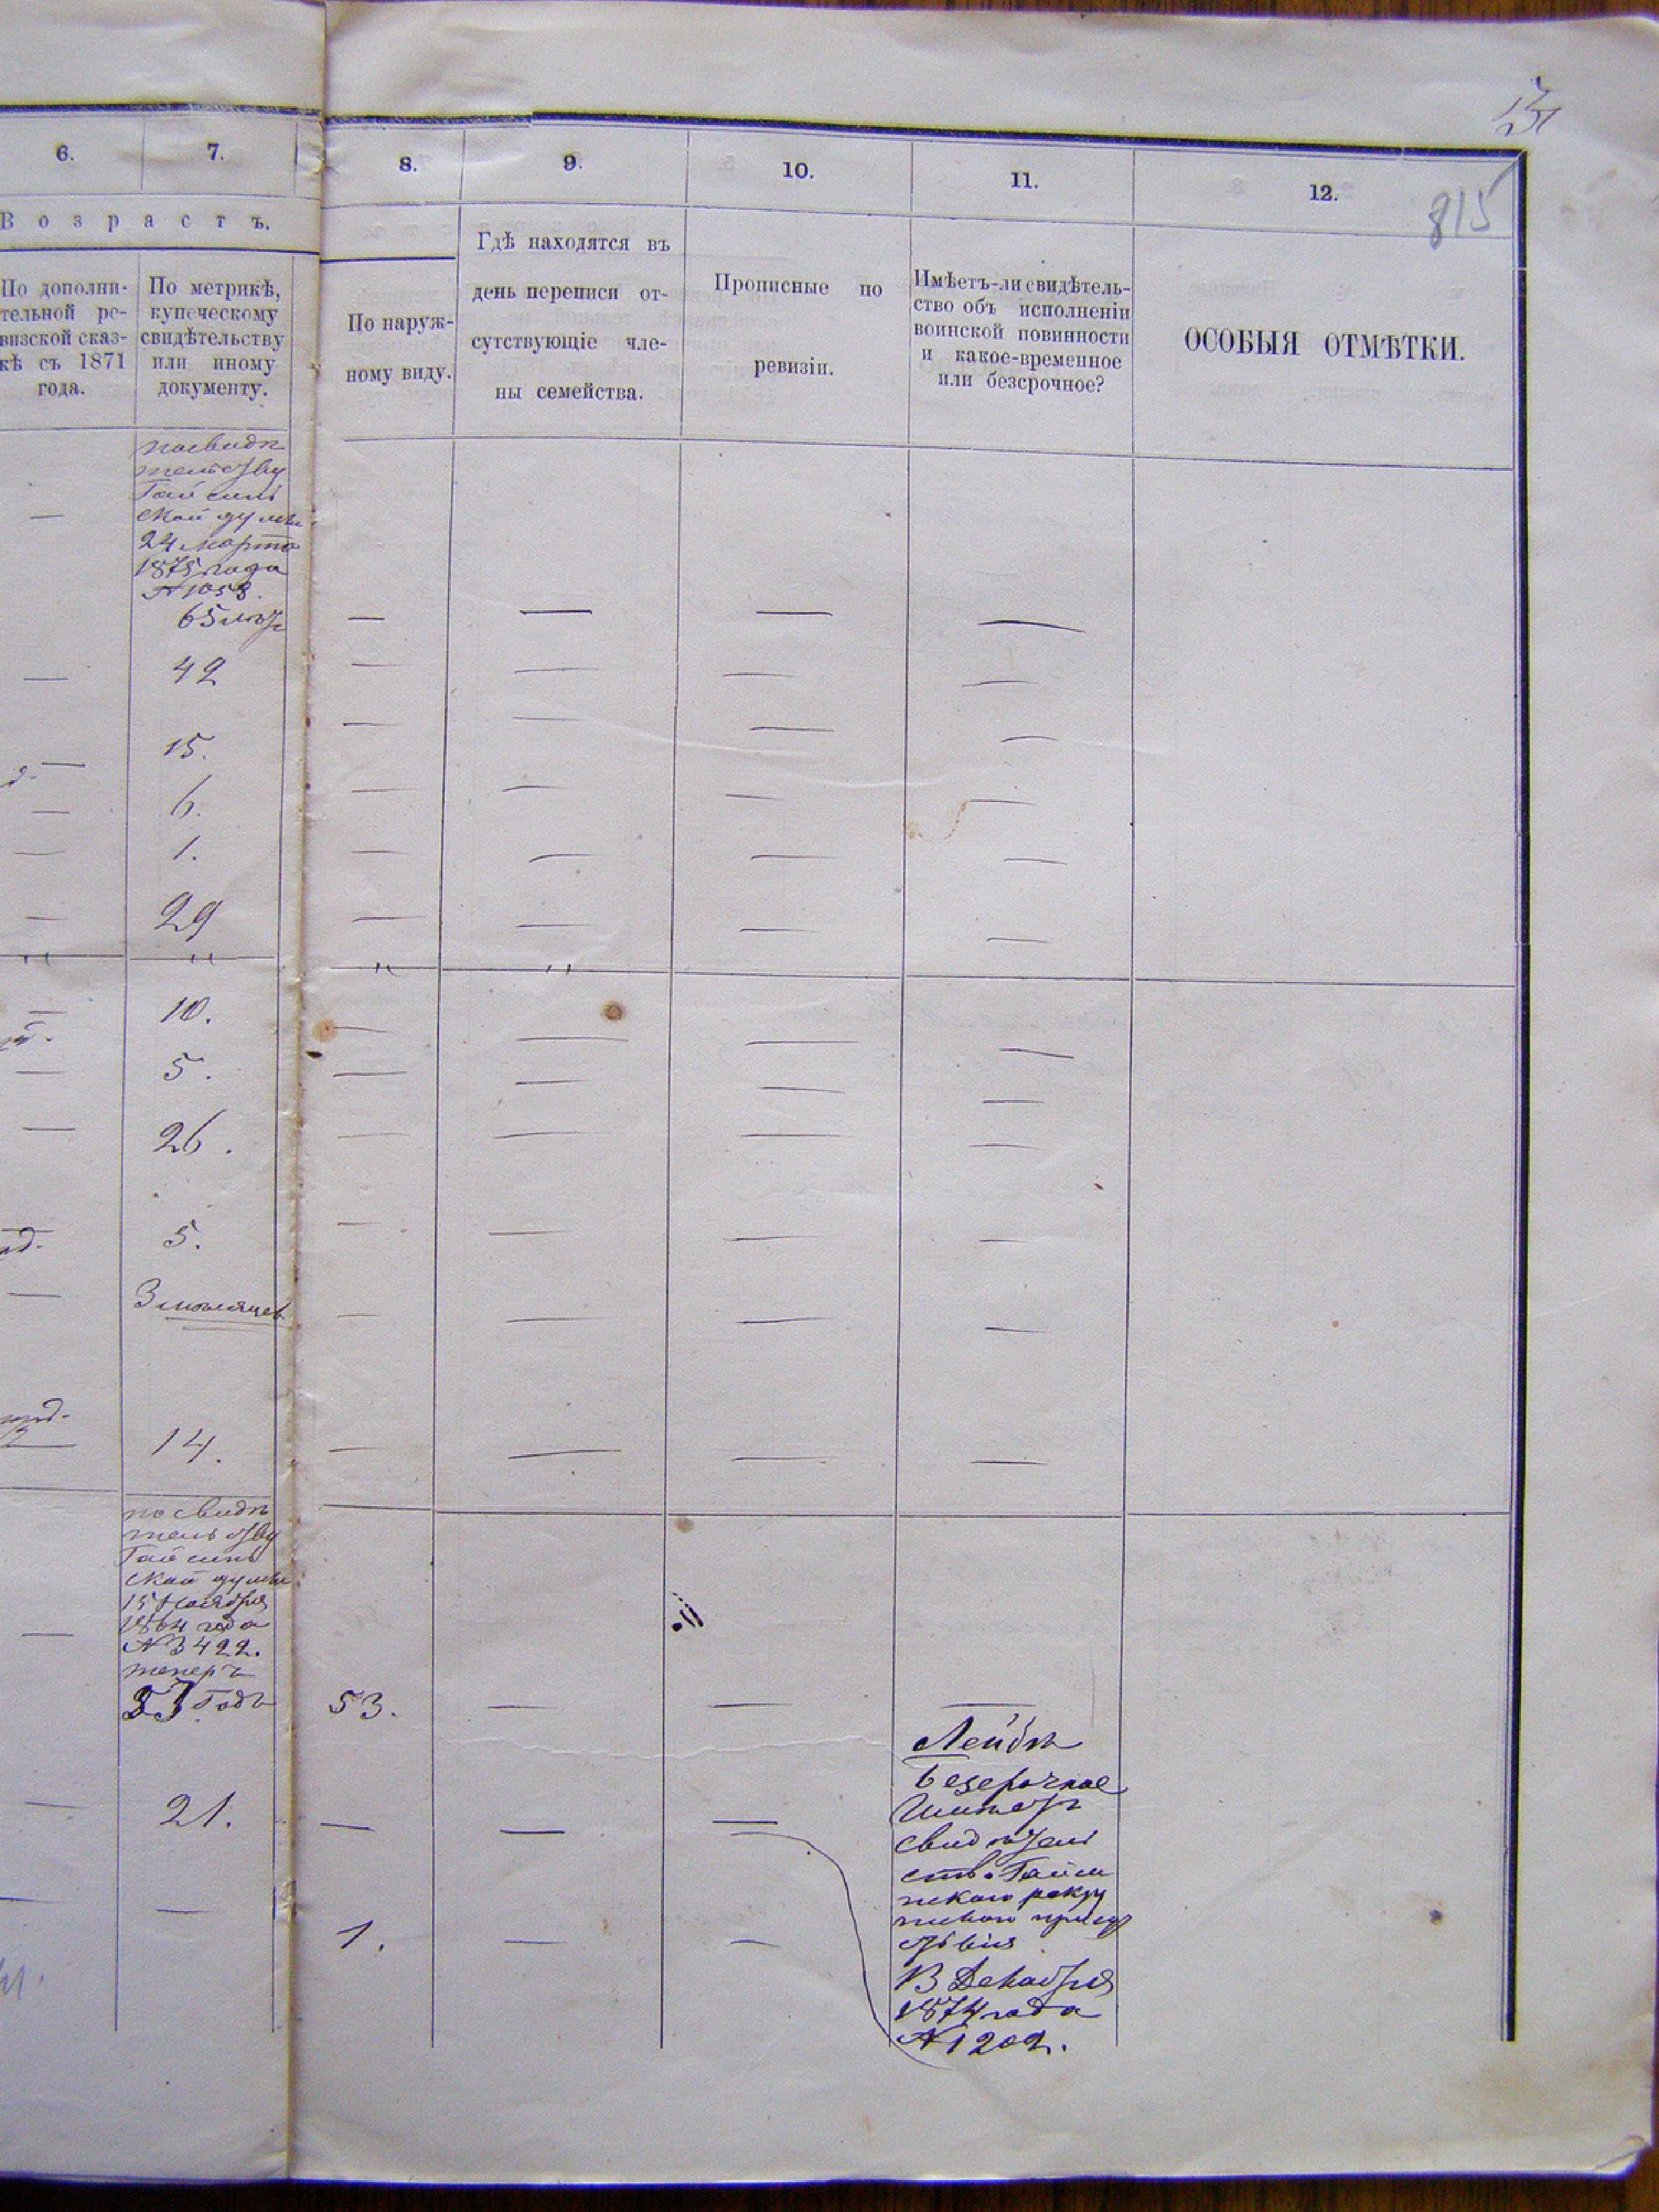 815
6.
7.
8.
9.
10.
11.
12.
Возрастъ.
По дополни-
тельной ре-
визской сказ-
кѣ съ 1871
года.
По метрикѣ,
купеческому
свидѣтельству
или иному
документу.
По наруж-
ному виду.
Гдѣ находятся въ
день переписи от-
сутствующіе чле-
ны семейства.
Прописные по
ревизіи.
Имѣетъ-ли свидѣтель-
ство объ исполненіи
воинской повинности
и какое-временное
или безсрочное?
ОСОБЫЯ ОТМѢТКИ.
по свидѣ
тельству
Гайсинь
ской думы
24 марта
1875 года
№ 1058.
65 лѣтъ
— 42
— 15.
— 6.
— 1.
— 29
— 10.
— 5.
— 26.
— 5.
— 3 мѣсяцев
14.
по свидѣ
тельству
Гайсинь
ской думы
15 Ноября
1864 года
№ 3422.
теперъ
53 Годъ
53.
21.
— 1.
Лейбъ
безсрочное
Имѣетъ
свидѣтель
ство Гайси
нскаго рекру
тскаго присут
ствія
13 Декабря
1874 года
№ 1202.